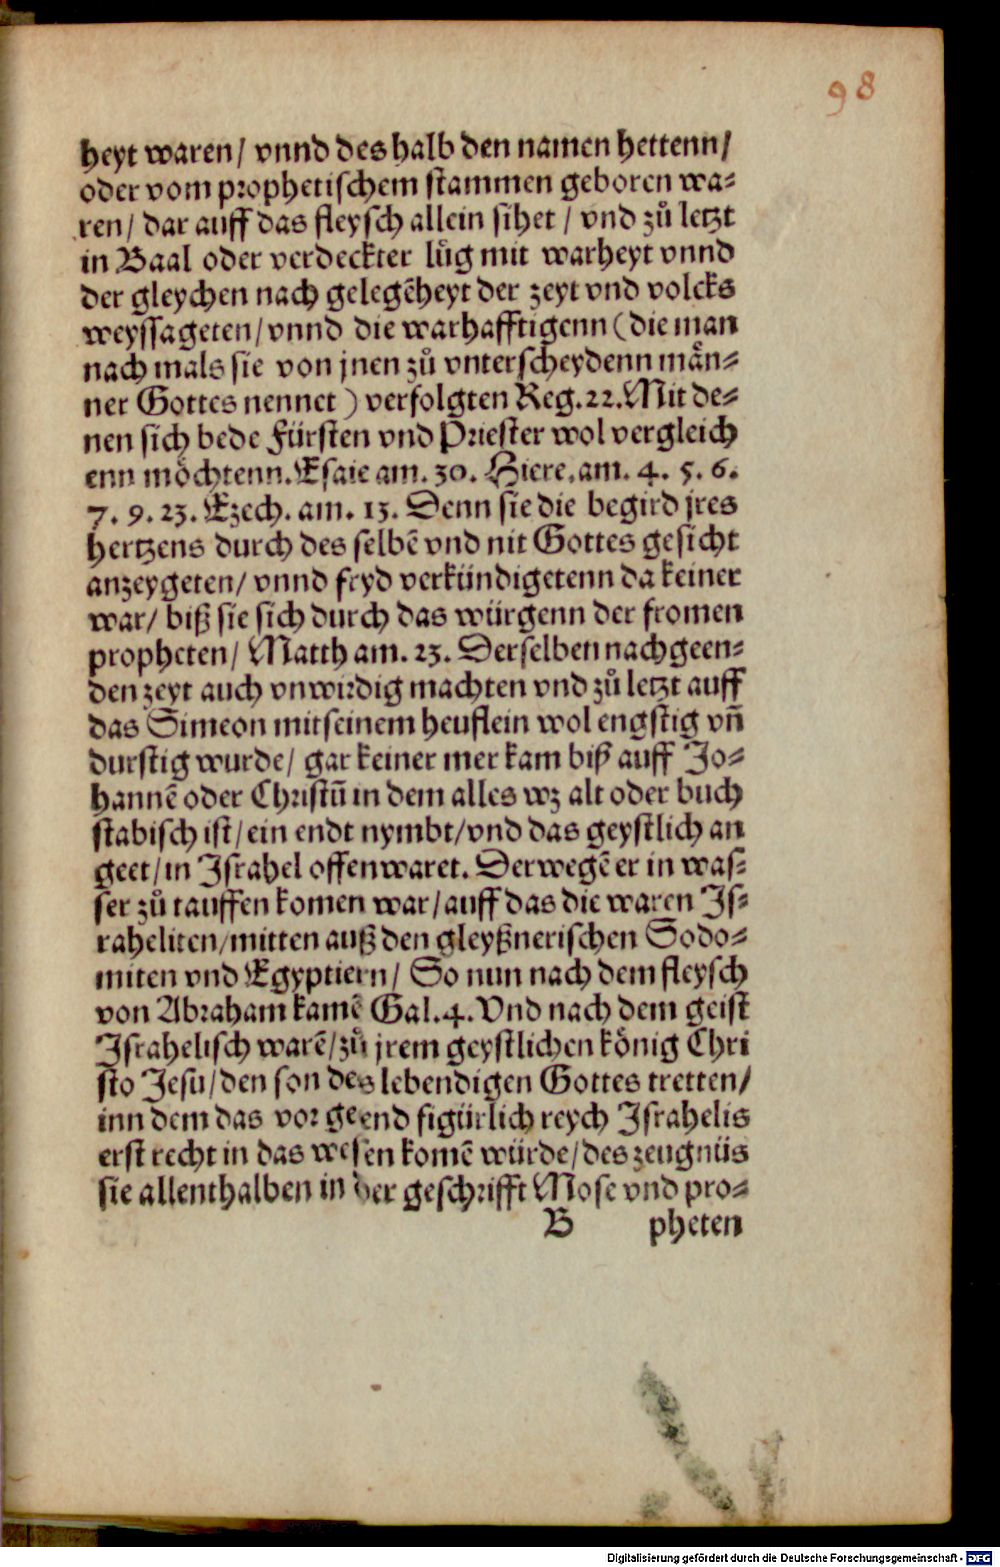 98
heyt waren/ vnnd des halb den namen hettenn/
oder vom prophetischem stammen geboren wa⸗
ren/ dar auff das fleysch allein sihet / vnd zů letzt
in Baal oder verdeckter lůg mit warheyt vnnd
der gleychen nach gelegẽheyt der zeyt vnd volcks
weyssageten/ vnnd die warhafftigenn (die man
nach mals sie von jnen zů vnterscheydenn mån⸗
ner Gottes nennet ) verfolgten Reg. 22. Mit de⸗
nen sich bede Fürsten vnd Priester wol vergleich
enn mőchtenn. Esaie am. 30. Hiere. am. 4. 5. 6.
7. 9. 23. Ezech. am. 13. Denn sie die begird jres
hertzens durch des selbẽ vnd nit Gottes gesicht
anzeygeten/ vnnd fryd verkündigetenn da keiner
war/ biß sie sich durch das würgenn der fromen
propheten/ Matth am. 23. Derselben nachgeen⸗
den zeyt auch vnwirdig machten vnd zů letzt auff
das Simeon mitseinem heuflein wol engstig vñ
durstig wurde/ gar keiner mer kam biß auff Jo⸗
hannẽ oder Christũ in dem alles wz alt oder buch
stabisch ist/ ein endt nymbt/ vnd das geystlich an
geet/ in Israhel offenwaret. Derwegẽ er in was⸗
ser zů tauffen komen war/ auff das die waren Is⸗
raheliten/ mitten auß den gleyßnerischen Sodo⸗
miten vnd Egyptiern/ So nun nach dem fleysch
von Abraham kamẽ Gal. 4. Vnd nach dem geist
Israhelisch warẽ/ zů jrem geystlichen kőnig Chri
sto Jesu/ den son des lebendigen Gottes tretten/
inn dem das vor geend figürlich reych Israhelis
erst recht in das wesen komẽ würde/ des zeugnüs
sie allenthalben in der geschrifft Mose vnd pro⸗
B pheten
Digitalisierung gefördert durch die Deutsche Forschungsgemeinschaft - DFG